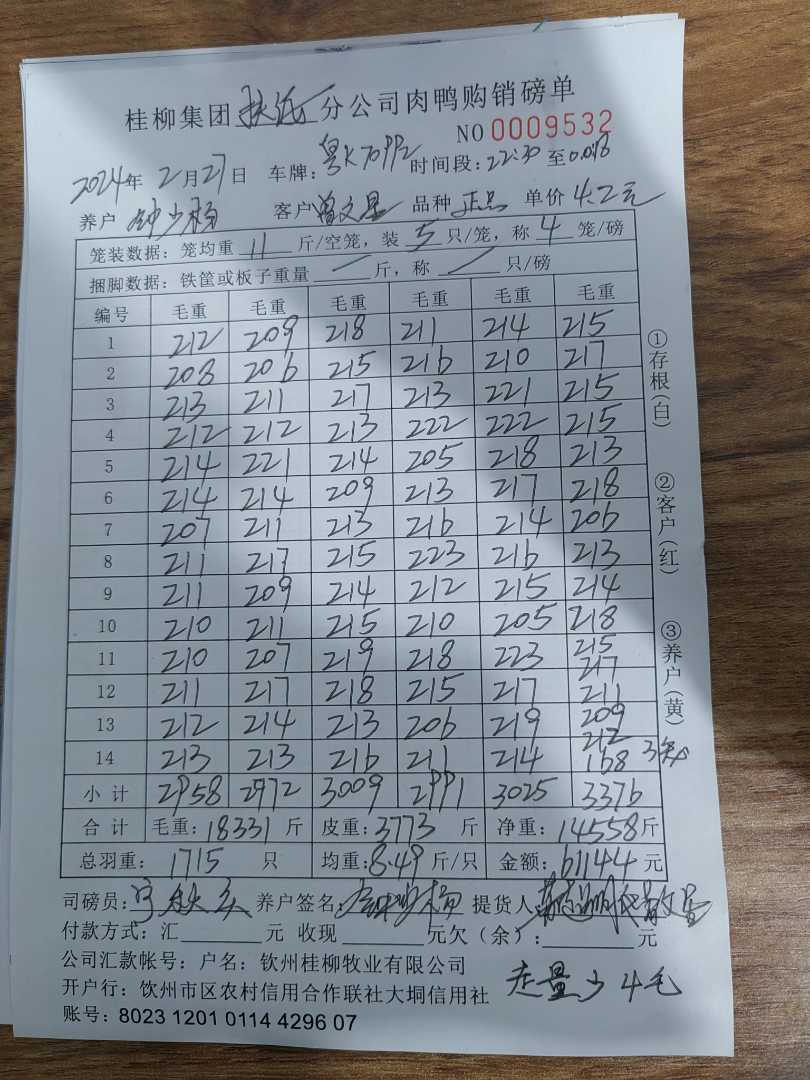 桂柳集团 分公司肉鸭购销磅单
NO 0009532
2024年 2月27日 车牌:粤K70PP2 时间段:22:30 至
养户 钟少杨 客户曾文星 品种 正品 单价 4.2元
笼装数据:笼均重 11 斤/空笼,装 5 只/笼,称 4 笼/磅
捆脚数据:铁筐或板子重量 / 斤,称 / 只/磅
编号 毛重 毛重 毛重 毛重 毛重 毛重
1 212 209 218 211 214 215
2 208 206 215 216 210 217
3 213 211 217 213 221 215
4 212 212 213 222 222 215
5 214 221 214 205 218 213
6 214 214 209 213 217 218
7 207 211 213 216 214 206
8 211 217 215 223 216 213
9 211 209 214 212 215 214
10 210 211 215 210 205 218
11 210 207 219 218 223 215
217
12 211 217 218 215 217 211
13 212 214 213 206 219 209
212
14 213 213 216 211 214 168 3笼
小计 2958 2972 3009 2991 3025 3376
合计 毛重:18331斤 皮重:3773 斤 净重:14558斤
总羽重: 1715 只 均重:8.49斤/只 金额:61144元
司磅员: 养户签名: 提货人
付款方式:汇 元 收现 元欠(余): 元
公司汇款帐号:户名:钦州桂柳牧业有限公司
开户行:钦州市区农村信用合作联社大垌信用社
走量少4毛
账号:8023 1201 0114 4296 07
①存根(白)
②客户(红)
③养户(黄)